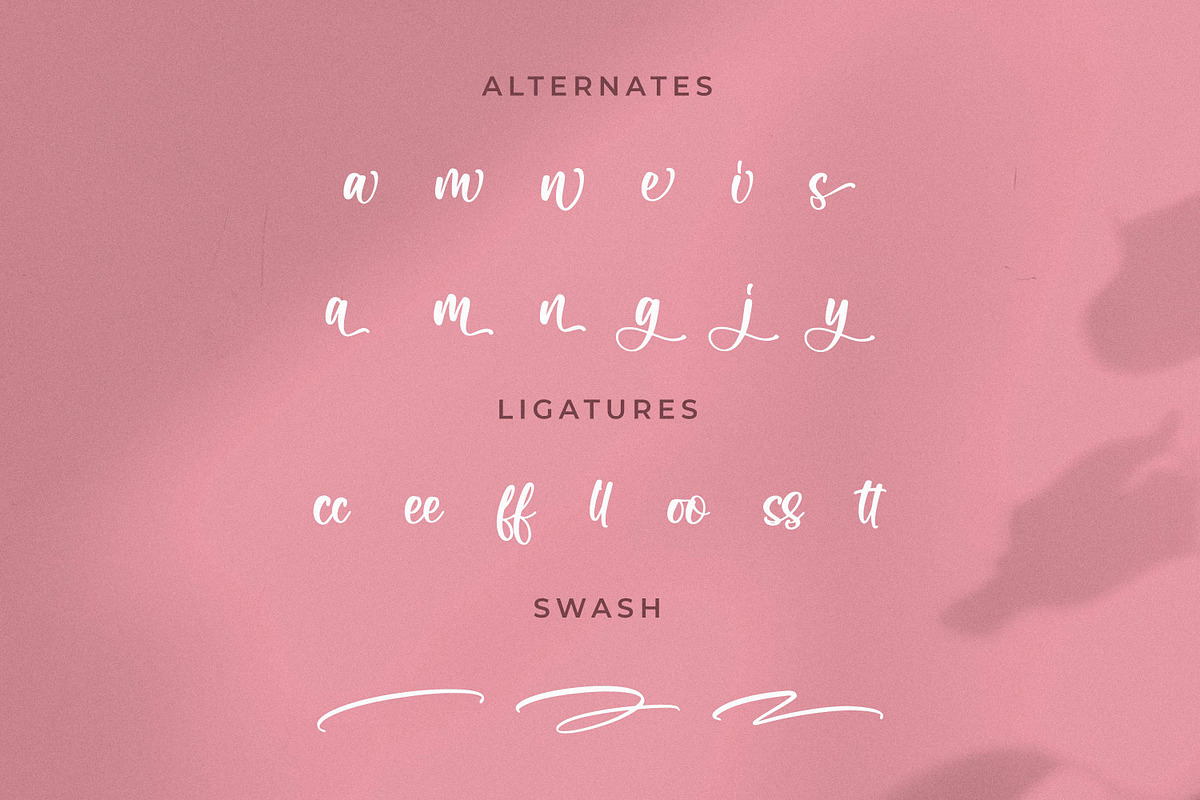 ALTERNATES
a m n e i s
a m n g j y
LIGATURES
cc ee ff ll oo ss tt
SWASH